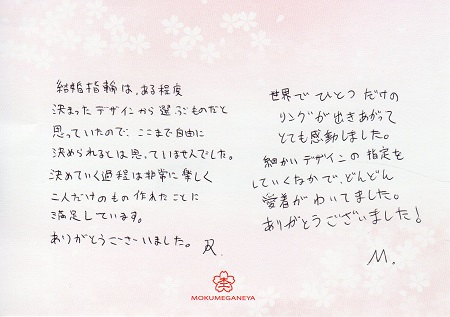 結婚指輪は、ある程度
決まったデザインから選ぶものだと
思っていたので、ここまで自由に
決められるとは思っていませんでした。
決めていく過程は非常に楽しく
二人だけのもの作れたことに
満足しています。
ありがとうございました。 R.
世界でひとつだけの
リングが出きあがって
とても感動しました。
細かいデザインの指定を
していくなかで、どんどん
愛着がわいてました。
ありがとうございました！
M.
MOKUMEGANEYA